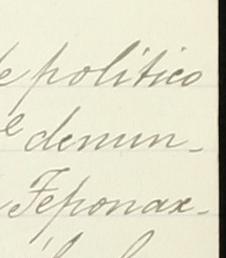 e político
e denun-
Teponax-